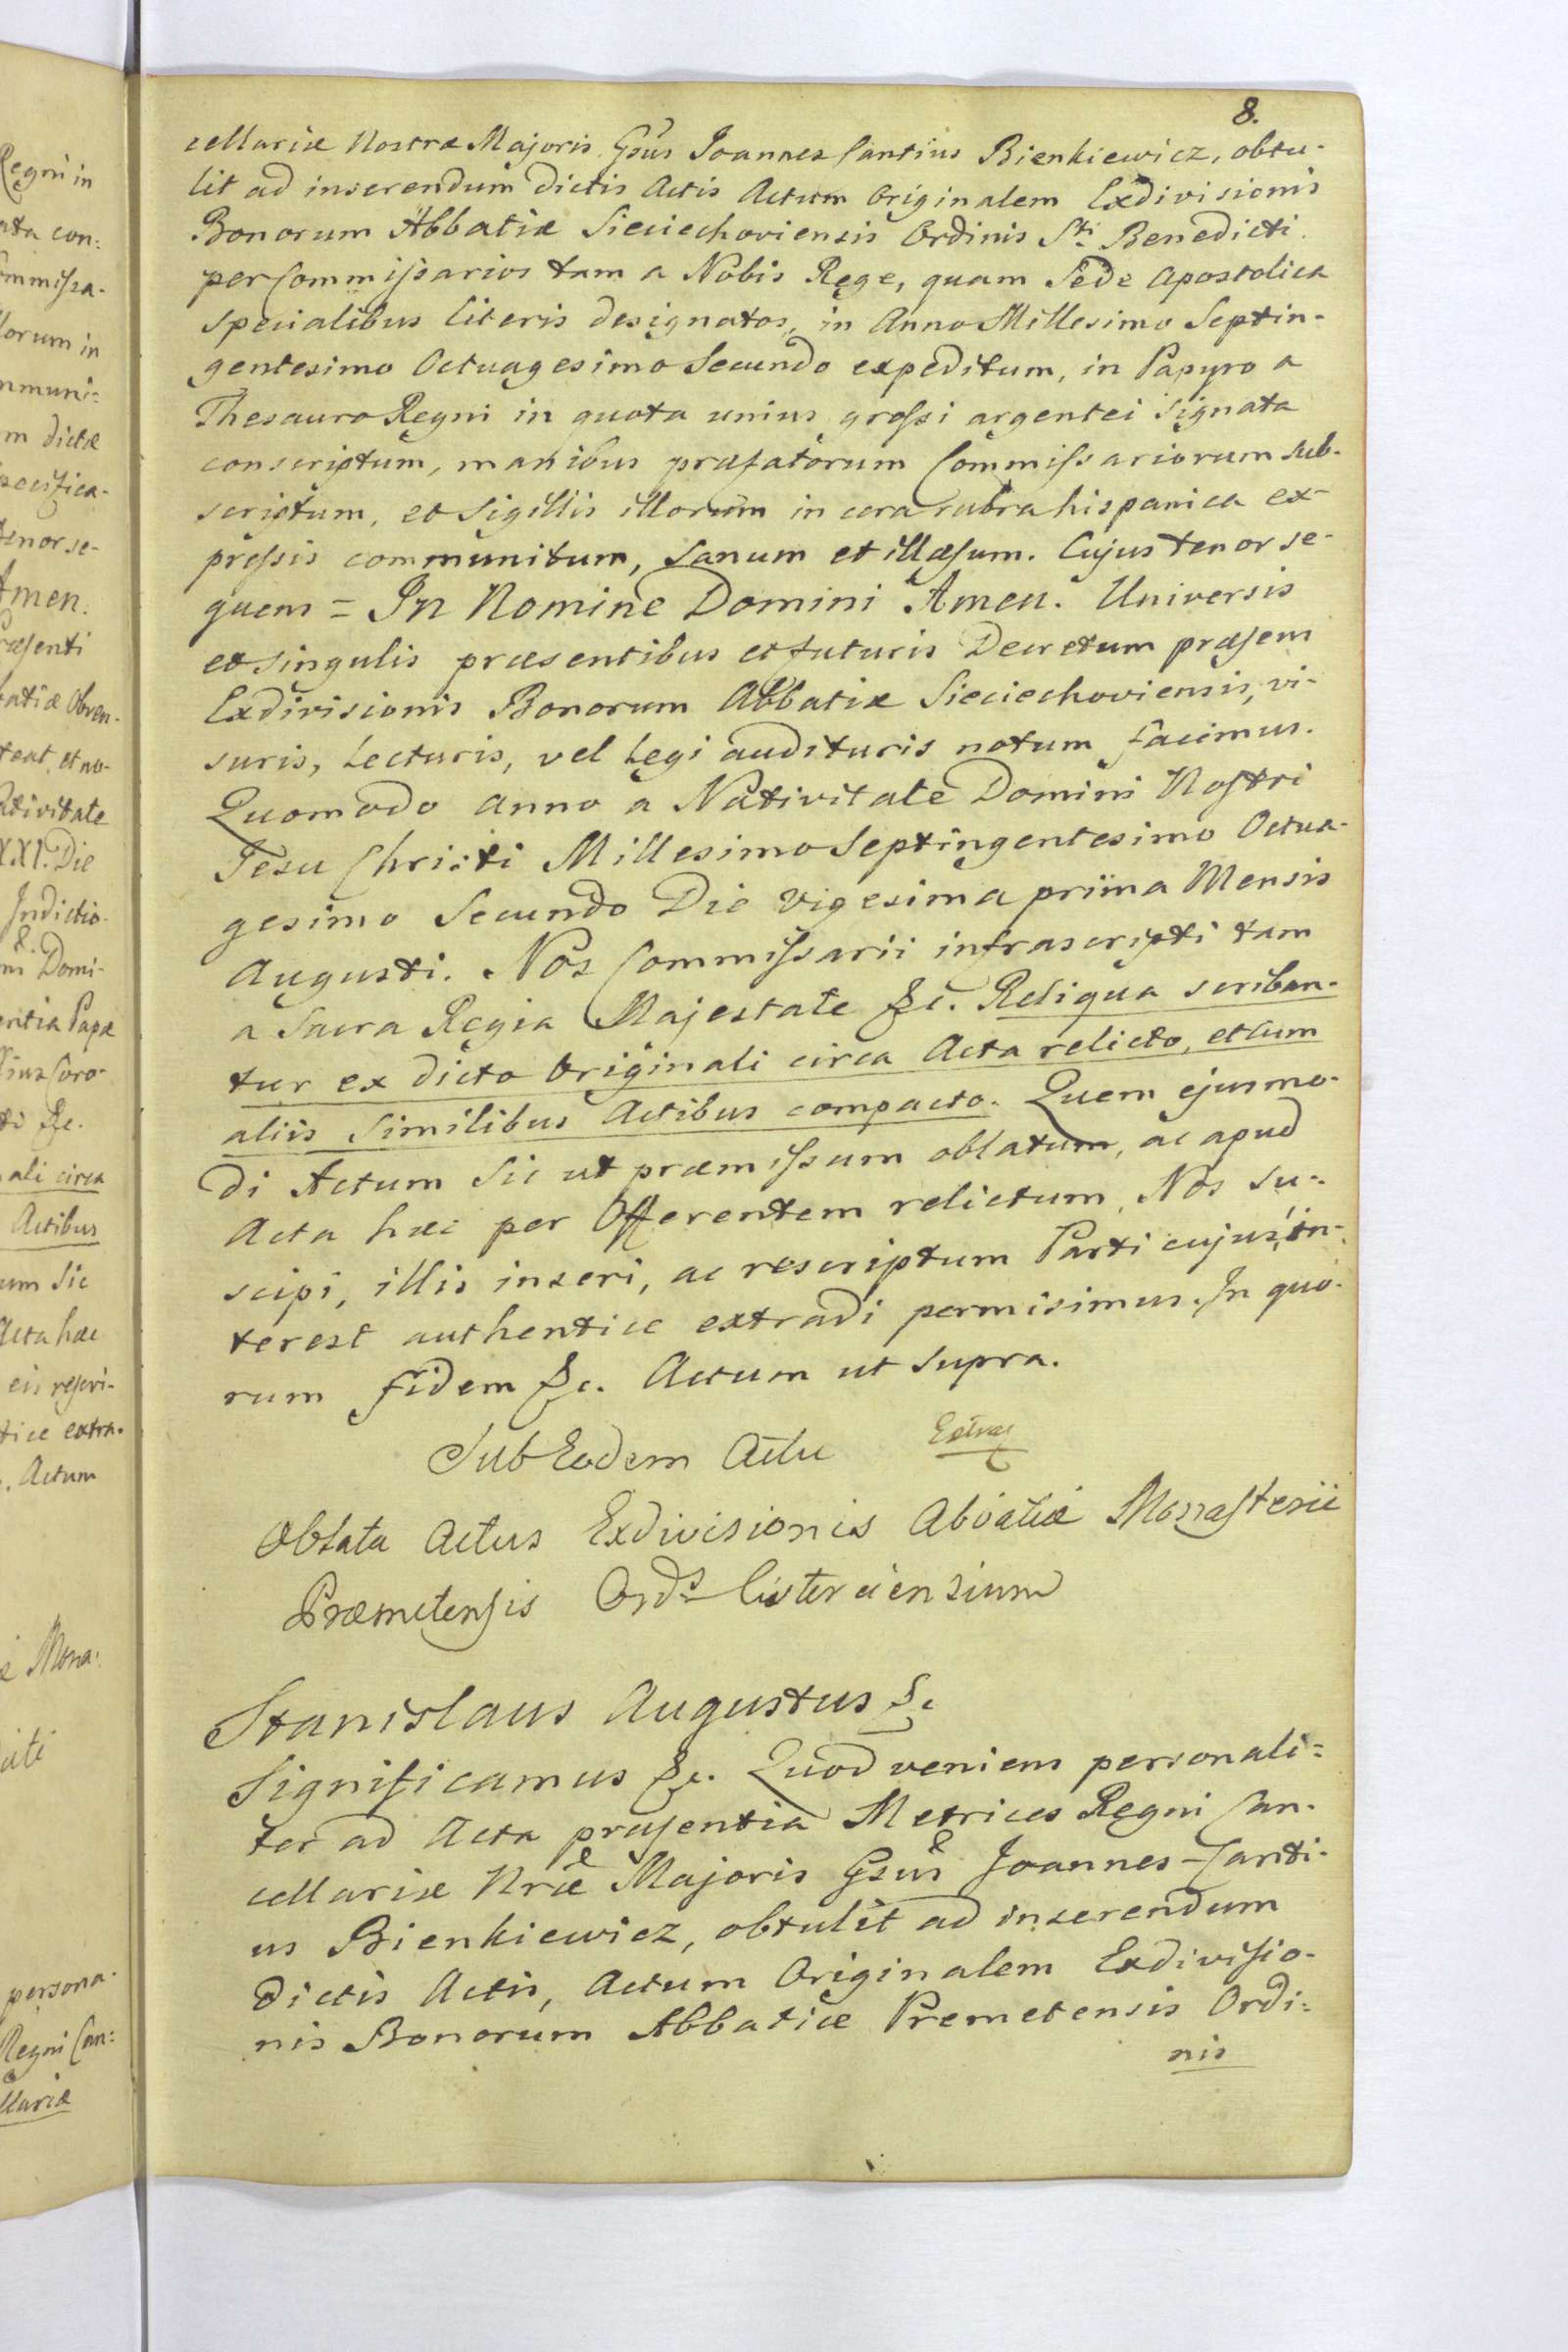 8.
cellariæ Nostræ Majoris Gsũs Joannes Cantius Bienkiewicz, obtu-
lit ad inserendum dictis Actis Actum Originalem Exdivisionis
Bonorum Abbatiæ Sieciechoviensis Ordinis Sti Benedicti
per Commissarios tam a Nobis Rege, quam Sede Apostolica
specialibus literis designatos, in Anno Millesimo Septin-
gentesimo Octuagesimo Secundo expeditum, in Papyro a
Thesauro Regni in quota unius grossi argentei signata
conscriptum, manibus præfatorum Commissariorum sub-
scriptum, et Sigillis illorum in cera rubra hispanica ex-
pressis communitum, sanum et illæsum. Cujus tenor se-
quens = In Nomine Domini Amen. Universis
et singulis præsentibus et futuris Decretum præsens
Exdivisionis Bonorum Abbatiæ Sieciechoviensis, vi-
suris, lecturis, vel legi audituris notum facimus.
Quomodo Anno a Nativitate Domini Nostri
Jesu Christi Millesimo Septingentesimo Octua-
gesimo Secundo Die vigesima prima Mensis
Augusti. Nos Commissarii infrascripti tam
a Sacra Regia Majestate &c. Reliqua scriban-
tur ex dicto Originali circa Acta relicto, et cum
aliis similibus Actibus compacto. Quem ejusmo-
di Actum sic ut præmissum oblatum, ac apud
Acta hæc per Offerentem relictum, Nos su-
scipi, illis inseri, ac rescriptum Parti cujus in-
terest authentice extradi permisimus. In quo-
rum fidem &c. Actum ut supra.
Sub Eodem Actu
Oblata Actus Exdivisionis Abbatiæ Monasterii
Præmetensis Ords Cisterciensium
Stanislaus Augustus &c
Significamus &c. Quod veniens personali=
ter ad Acta præsentia Metrices Regni Can-
cellariæ Nræ Majoris Gsũs Joannes-Canti-
us Bienkiewicz, obtulit ad inserendum
dictis Actis, Actum Originalem Exdivisio-
nis Bonorum Abbatiæ Premetensis Ordi=
nis
Regni in
Amen.
Actibus
Acta hæc
Actum
persona-
Regni Can:
llariæ